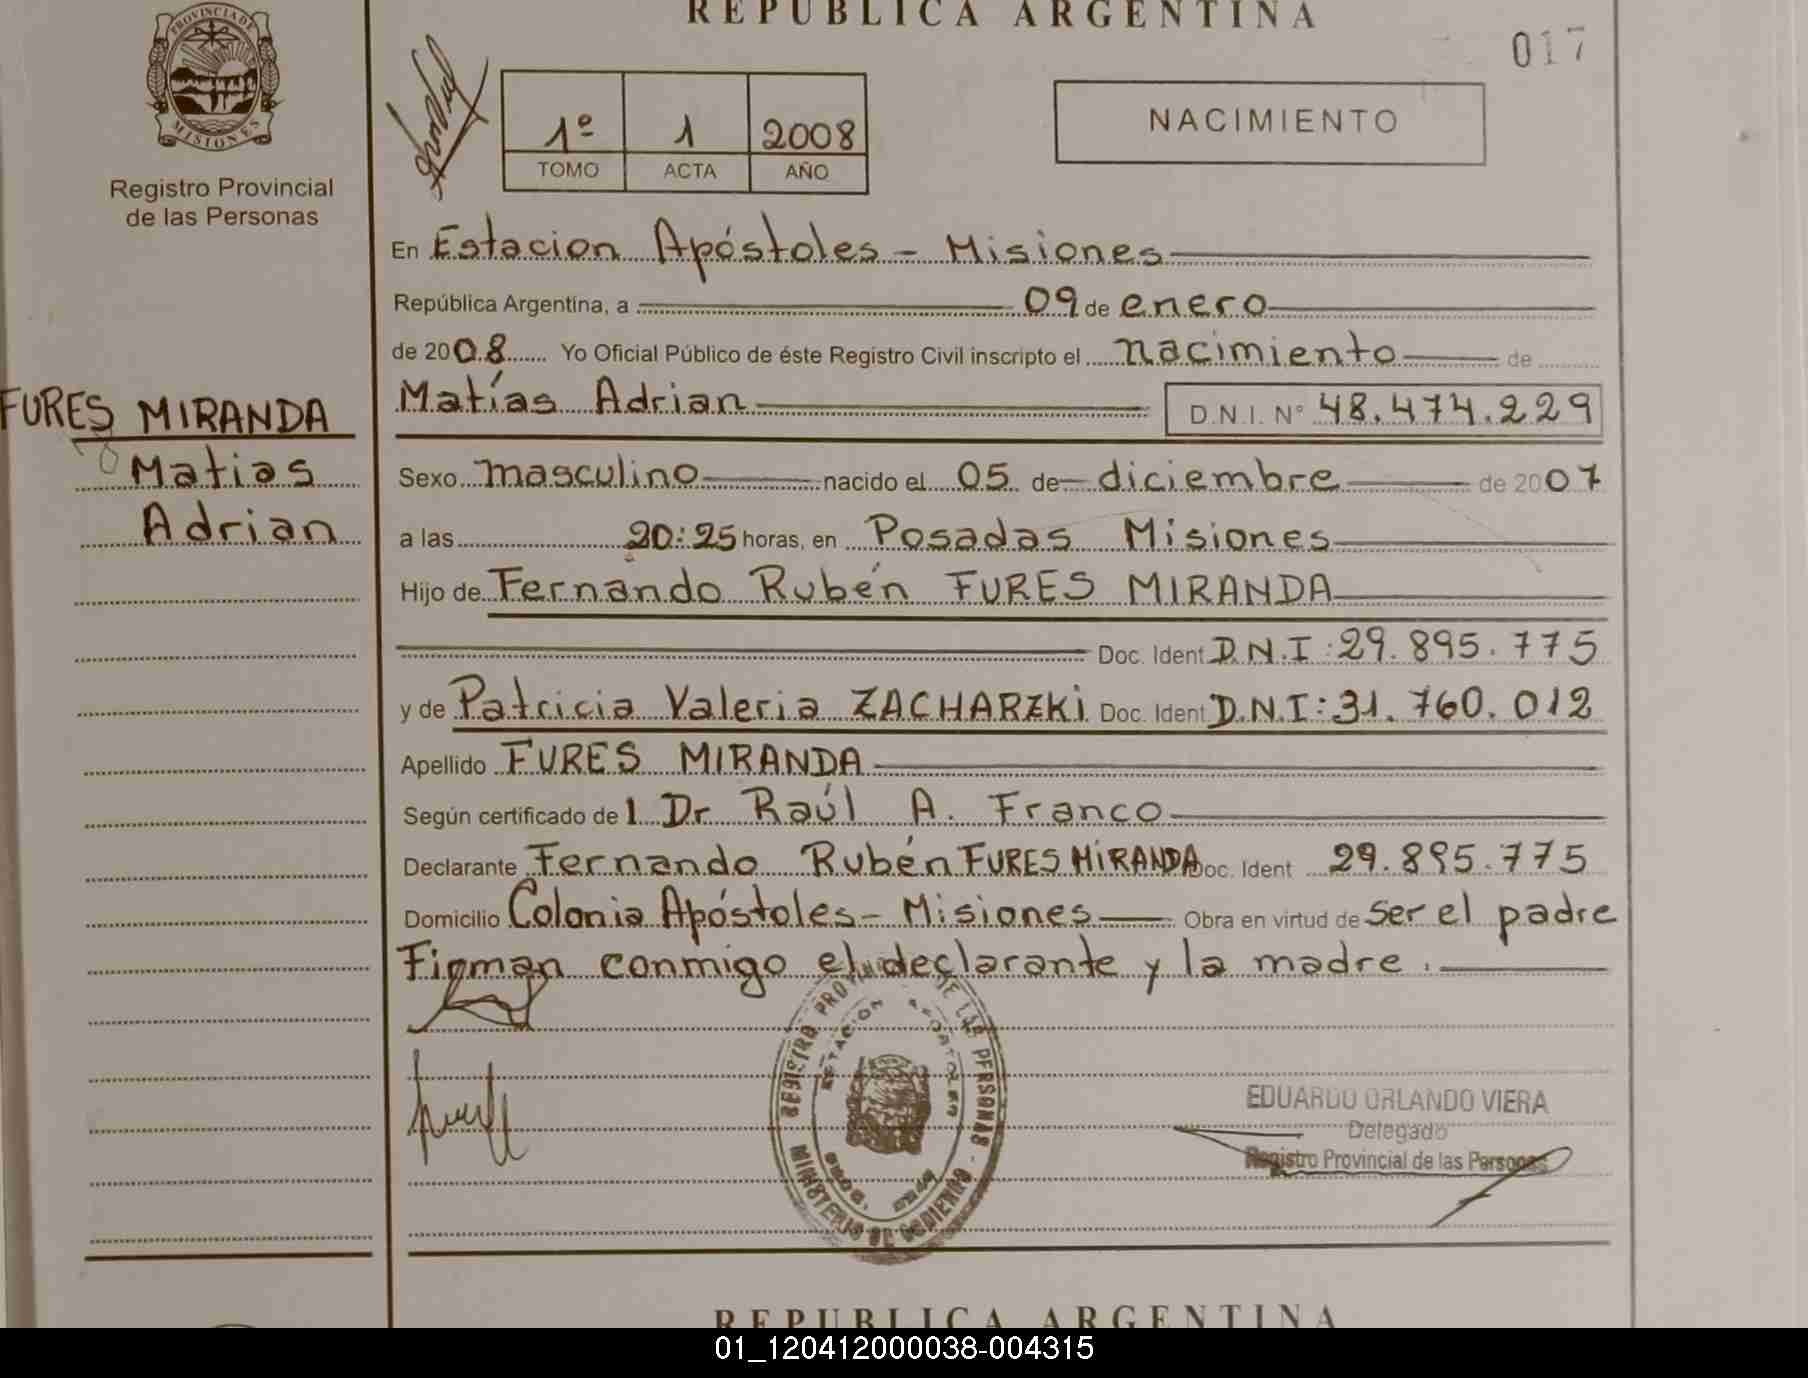 REPUBLICA ARGENTINA
017
PROVINCIA DE
MISIONES
Registro Provincial
de las Personas
1º 1 2008
TOMO ACTA AÑO
NACIMIENTO
En Estacion Apóstoles - Misiones
República Argentina, a 09 de enero
de 2008 Yo Oficial Público de éste Registro Civil inscripto el nacimiento de
Matías Adrian D.N.I. N° 48.474.229
FURES MIRANDA
Matias
Adrian
Sexo masculino nacido el 05 de diciembre de 2007
a las 20:25 horas, en Posadas Misiones
Hijo de Fernando Rubén FURES MIRANDA
Doc. Ident D.N.I: 29.895.775
y de Patricia Valeria ZACHARZKi Doc. Ident D.N.I: 31.760.012
Apellido FURES MIRANDA
Según certificado de l Dr Raúl A. Franco
Declarante Fernando Rubén FURES MiRANDA Doc. Ident 29.895.775
Domicilio Colonia Apóstoles - Misiones Obra en virtud de ser el padre
Firman conmigo el declarante y la madre.
REGISTRO PROVINCIAL DE LAS PERSONAS - MINISTERIO DE GOBIERNO
ESTACION APOSTOLES
EDUARDO ORLANDO VIERA
Delegado
Registro Provincial de las Personas
REPUBLICA ARGENTINA
01_120412000038-004315